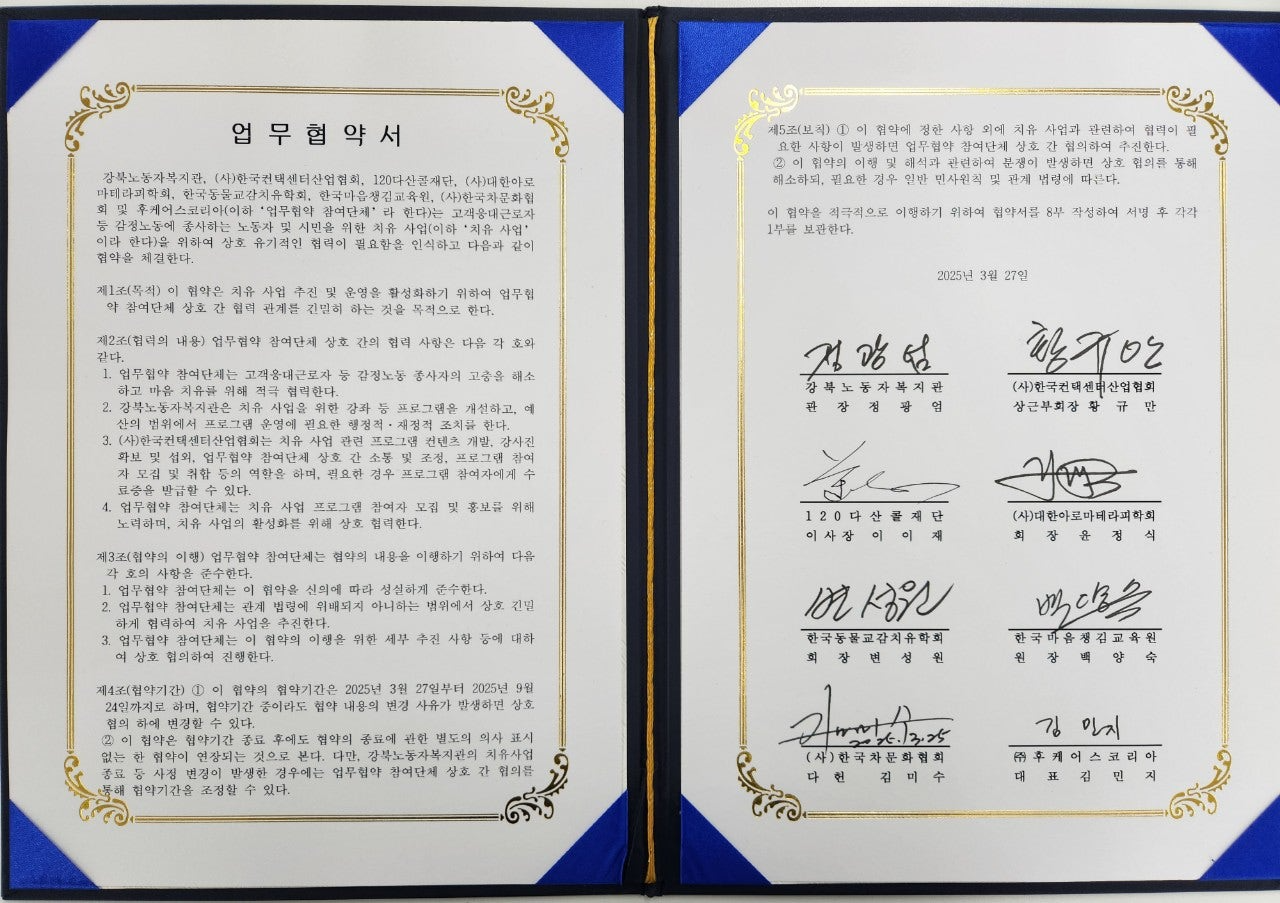 업무협약서
강북노동자복지관, (사)한국컨택센터산업협회, 120다산콜재단, (사)대한아로
마테라피학회, 한국동물교감치유학회, 한국마음챙김교육원, (사)한국차문화협
회 및 후케어스코리아(이하 '업무협약 참여단체' 라 한다)는 고객응대근로자
등 감정노동에 종사하는 노동자 및 시민을 위한 치유 사업(이하 '치유 사업'
이라 한다)을 위하여 상호 유기적인 협력이 필요함을 인식하고 다음과 같이
협약을 체결한다.
제1조(목적) 이 협약은 치유 사업 추진 및 운영을 활성화하기 위하여 업무협
약 참여단체 상호 간 협력 관계를 긴밀히 하는 것을 목적으로 한다.
제2조(협력의 내용) 업무협약 참여단체 상호 간의 협력 사항은 다음 각 호와
같다.
1. 업무협약 참여단체는 고객응대근로자 등 감정노동 종사자의 고충을 해소
하고 마음 치유를 위해 적극 협력한다.
2. 강북노동자복지관은 치유 사업을 위한 강좌 등 프로그램을 개설하고, 예
산의 범위에서 프로그램 운영에 필요한 행정적·재정적 조치를 한다.
3. (사)한국컨택센터산업협회는 치유 사업 관련 프로그램 컨텐츠 개발, 강사진
확보 및 섭외, 업무협약 참여단체 상호 간 소통 및 조정, 프로그램 참여
자 모집 및 취합 등의 역할을 하며, 필요한 경우 프로그램 참여자에게 수
료증을 발급할 수 있다.
4. 업무협약 참여단체는 치유 사업 프로그램 참여자 모집 및 홍보를 위해
노력하며, 치유 사업의 활성화를 위해 상호 협력한다.
제3조(협약의 이행) 업무협약 참여단체는 협약의 내용을 이행하기 위하여 다음
각 호의 사항을 준수한다.
1. 업무협약 참여단체는 이 협약을 신의에 따라 성실하게 준수한다.
2. 업무협약 참여단체는 관계 법령에 위배되지 아니하는 범위에서 상호 긴밀
하게 협력하여 치유 사업을 추진한다.
3. 업무협약 참여단체는 이 협약의 이행을 위한 세부 추진 사항 등에 대하
여 상호 협의하여 진행한다.
제4조(협약기간) ① 이 협약의 협약기간은 2025년 3월 27일부터 2025년 9월
24일까지로 하며, 협약기간 중이라도 협약 내용의 변경 사유가 발생하면 상호
협의 하에 변경할 수 있다.
② 이 협약은 협약기간 종료 후에도 협약의 종료에 관한 별도의 의사 표시
없는 한 협약이 연장되는 것으로 본다. 다만, 강북노동자복지관의 치유사업
종료 등 사정 변경이 발생한 경우에는 업무협약 참여단체 상호 간 협의를
통해 협약기간을 조정할 수 있다.
제5조(보칙) ① 이 협약에 정한 사항 외에 치유 사업과 관련하여 협력이 필
요한 사항이 발생하면 업무협약 참여단체 상호 간 협의하여 추진한다.
② 이 협약의 이행 및 해석과 관련하여 분쟁이 발생하면 상호 협의를 통해
해소하되, 필요한 경우 일반 민사원칙 및 관계 법령에 따른다.
이 협약을 적극적으로 이행하기 위하여 협약서를 8부 작성하여 서명 후 각각
1부를 보관한다.
2025년 3월 27일
정광엄 황규만
강북노동자복지관 (사)한국컨택센터산업협회
관장정광엄 상근부회장황규만
120다산콜재단 (사)대한아로마테라피학회
이사장이이재 회장윤정식
변성원 백양숙
한국동물교감치유학회 한국마음챙김교육원
회장변성원 원장백양숙
김미수 2025.3.25 김민지
(사)한국차문화협회 ㈜후케어스코리아
다헌 김미수 대표김민지